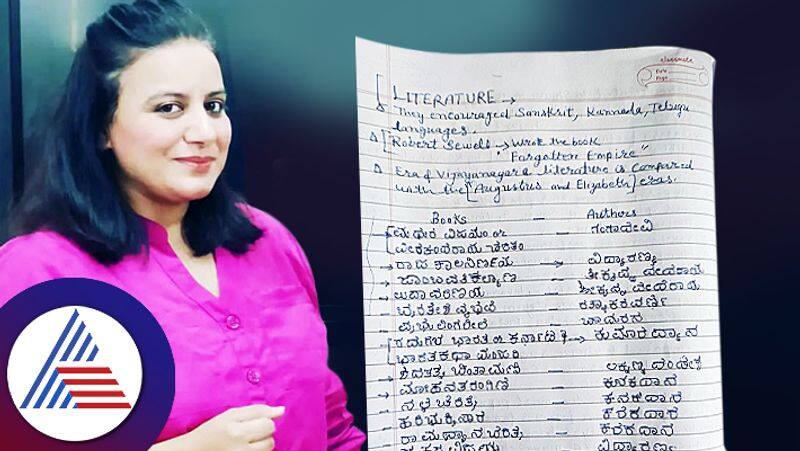 classmate
Date
Page
LITERATURE →
They encouraged Sanskrit, Kannada, Telugu
languages.
Robert Sewell → Wrote the book
"Forgotten Empire"
Era of Vijayanagara literature is Compared
with the [Augustus and Elizabeth] eras.
Books — Authors
ಮಧುರ ವಿಜಯಂ or — ಗಂಗಾದೇವಿ
ವೀರಕಂಪರಾಯ ಚರಿತಂ
→ ರಾಜ ಕಾಲನಿರ್ಣಯ — ವಿದ್ಯಾರಣ್ಯ
→ ಜಾಂಬವತಿ ಕಲ್ಯಾಣ — ಶ್ರೀಕೃಷ್ಣ ದೇವರಾಯ
→ — ಶ್ರೀಕೃಷ್ಣ ದೇವರಾಯ
→ ಭರತೇಶ ವೈಭವ — ರತ್ನಾಕರವರ್ಣಿ
→ ಪ್ರಭುಲಿಂಗಲೀಲೆ — ಚಾಮರಸ
→ ಭಾರತ or ಕರ್ನಾಟ → ಕುಮಾರವ್ಯಾಸ
ಭಾರತಕಥಾ ಮಂಜರಿ
→ ಶಿವತತ್ವ ಚಿಂತಾಮಣಿ — ಲಕ್ಕಣ್ಣ ದಂಡೇಶ
→ ಮೋಹನತರಂಗಿಣಿ — ಕನಕದಾಸ
→ ನಳ ಚರಿತ್ರೆ — ಕನಕದಾಸ
→ ಹರಿಭಕ್ತಿಸಾರ — ಕನಕದಾಸ
→ ರಾಮಧ್ಯಾನ ಚರಿತ್ರೆ — ಕನಕದಾಸ